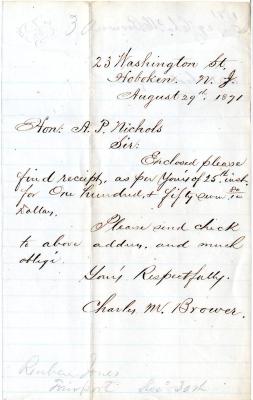 23 Washington St.
Hoboken. N. J
August 29th. 1871
Hon: A. P. Nichols
Sir:
Enclosed please
find receipt, as per Yours of 25th. inst
for One hundred & fifty seven
Dollars.
Please send check
to above address, and much
oblige.
Yours Respectfully.
Charles M. Brower.
Reuben Jones
Fairport Dec 30th